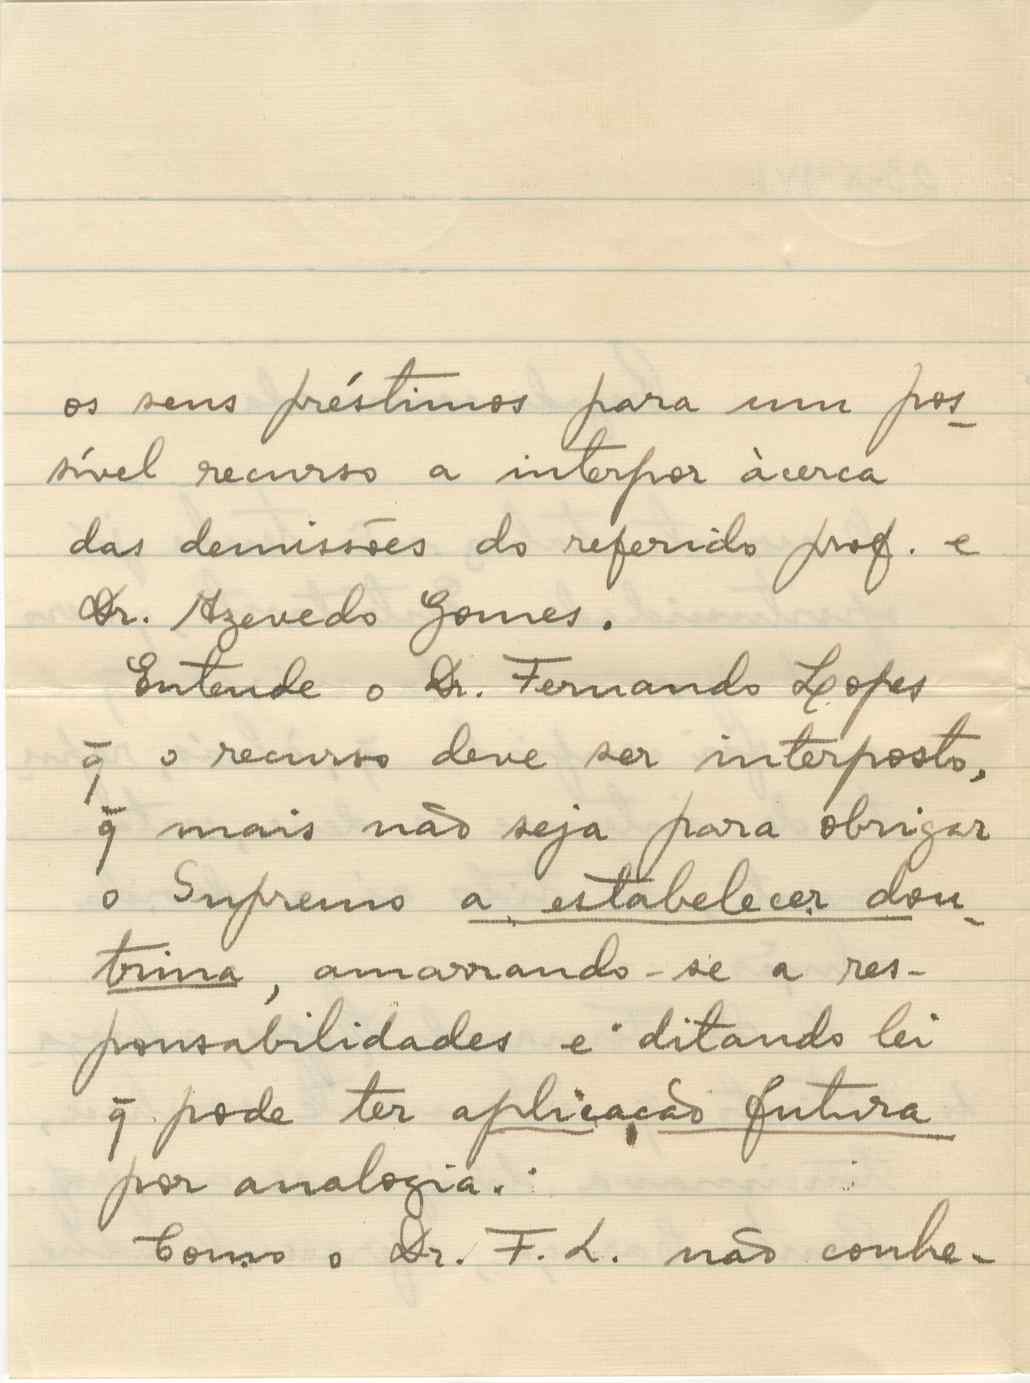 os seus préstimos para um pos-
sível recurso a interpor àcerca
das demissões do referido prof. e
Dr. Azevedo Gomes.
Entende o Dr. Fernando Lopes
q̄ o recurso deve ser interposto,
q̄ mais não seja para obrigar
o Supremo a estabelecer dou-
trina, amarrando-se a res-
ponsabilidades e ditando lei
q̄ pode ter aplicação futura
por analogia.
Como o Dr. F. L. não conhe-